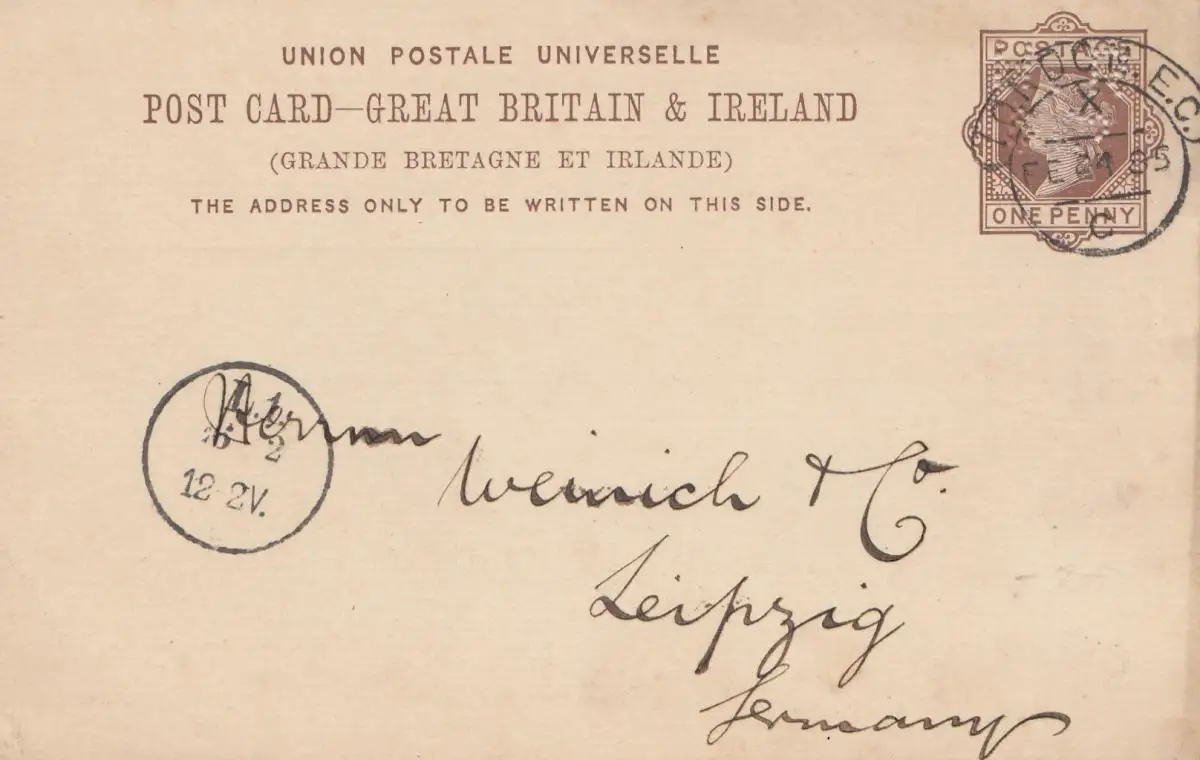 UNION POSTALE UNIVERSELLE
POST CARD—GREAT BRITAIN & IRELAND
(GRANDE BRETAGNE ET IRLANDE)
THE ADDRESS ONLY TO BE WRITTEN ON THIS SIDE.
POSTAGE
ONE PENNY
E.C.
X
FE 24 85
C
2
12-2V.
Herrnn
Weinich & Co.
Leipzig
Germany